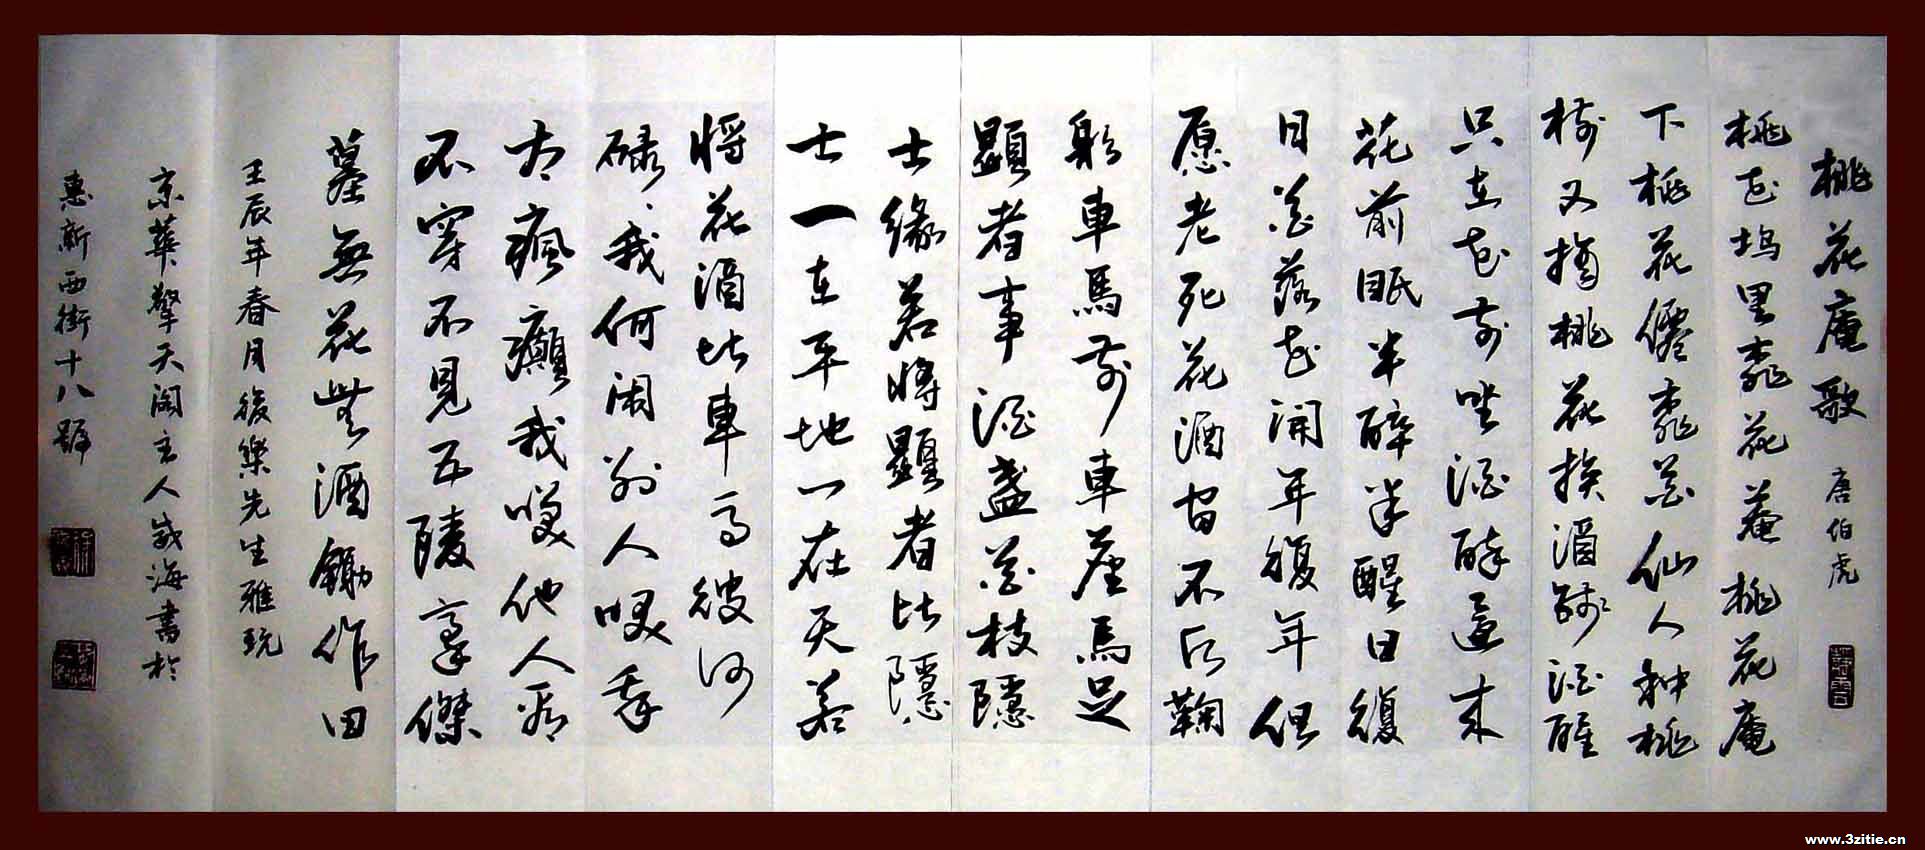 桃花庵歌 唐伯虎
桃花坞里桃花菴桃花庵
下桃花僊桃花仙人种桃
樹又摘桃花换酒錢酒醒
只在花前坐酒醉還来
花前眠半醉半醒日復
日花落花開年復年但
愿老死花酒间不鞠
躬車馬前車塵馬足
顯者事酒盞花枝隱
士缘若將顯者比隱
士一在平地一在天若
將花酒比車馬彼何
碌碌我何閑别人笑我
太瘋癲我笑他人看
不穿不見五陵豪傑
墓無花無酒鋤作田
壬辰年春月後樂先生雅玩
京華擎天阁主人海書於
惠新西街十八號
www.3zitie.cn